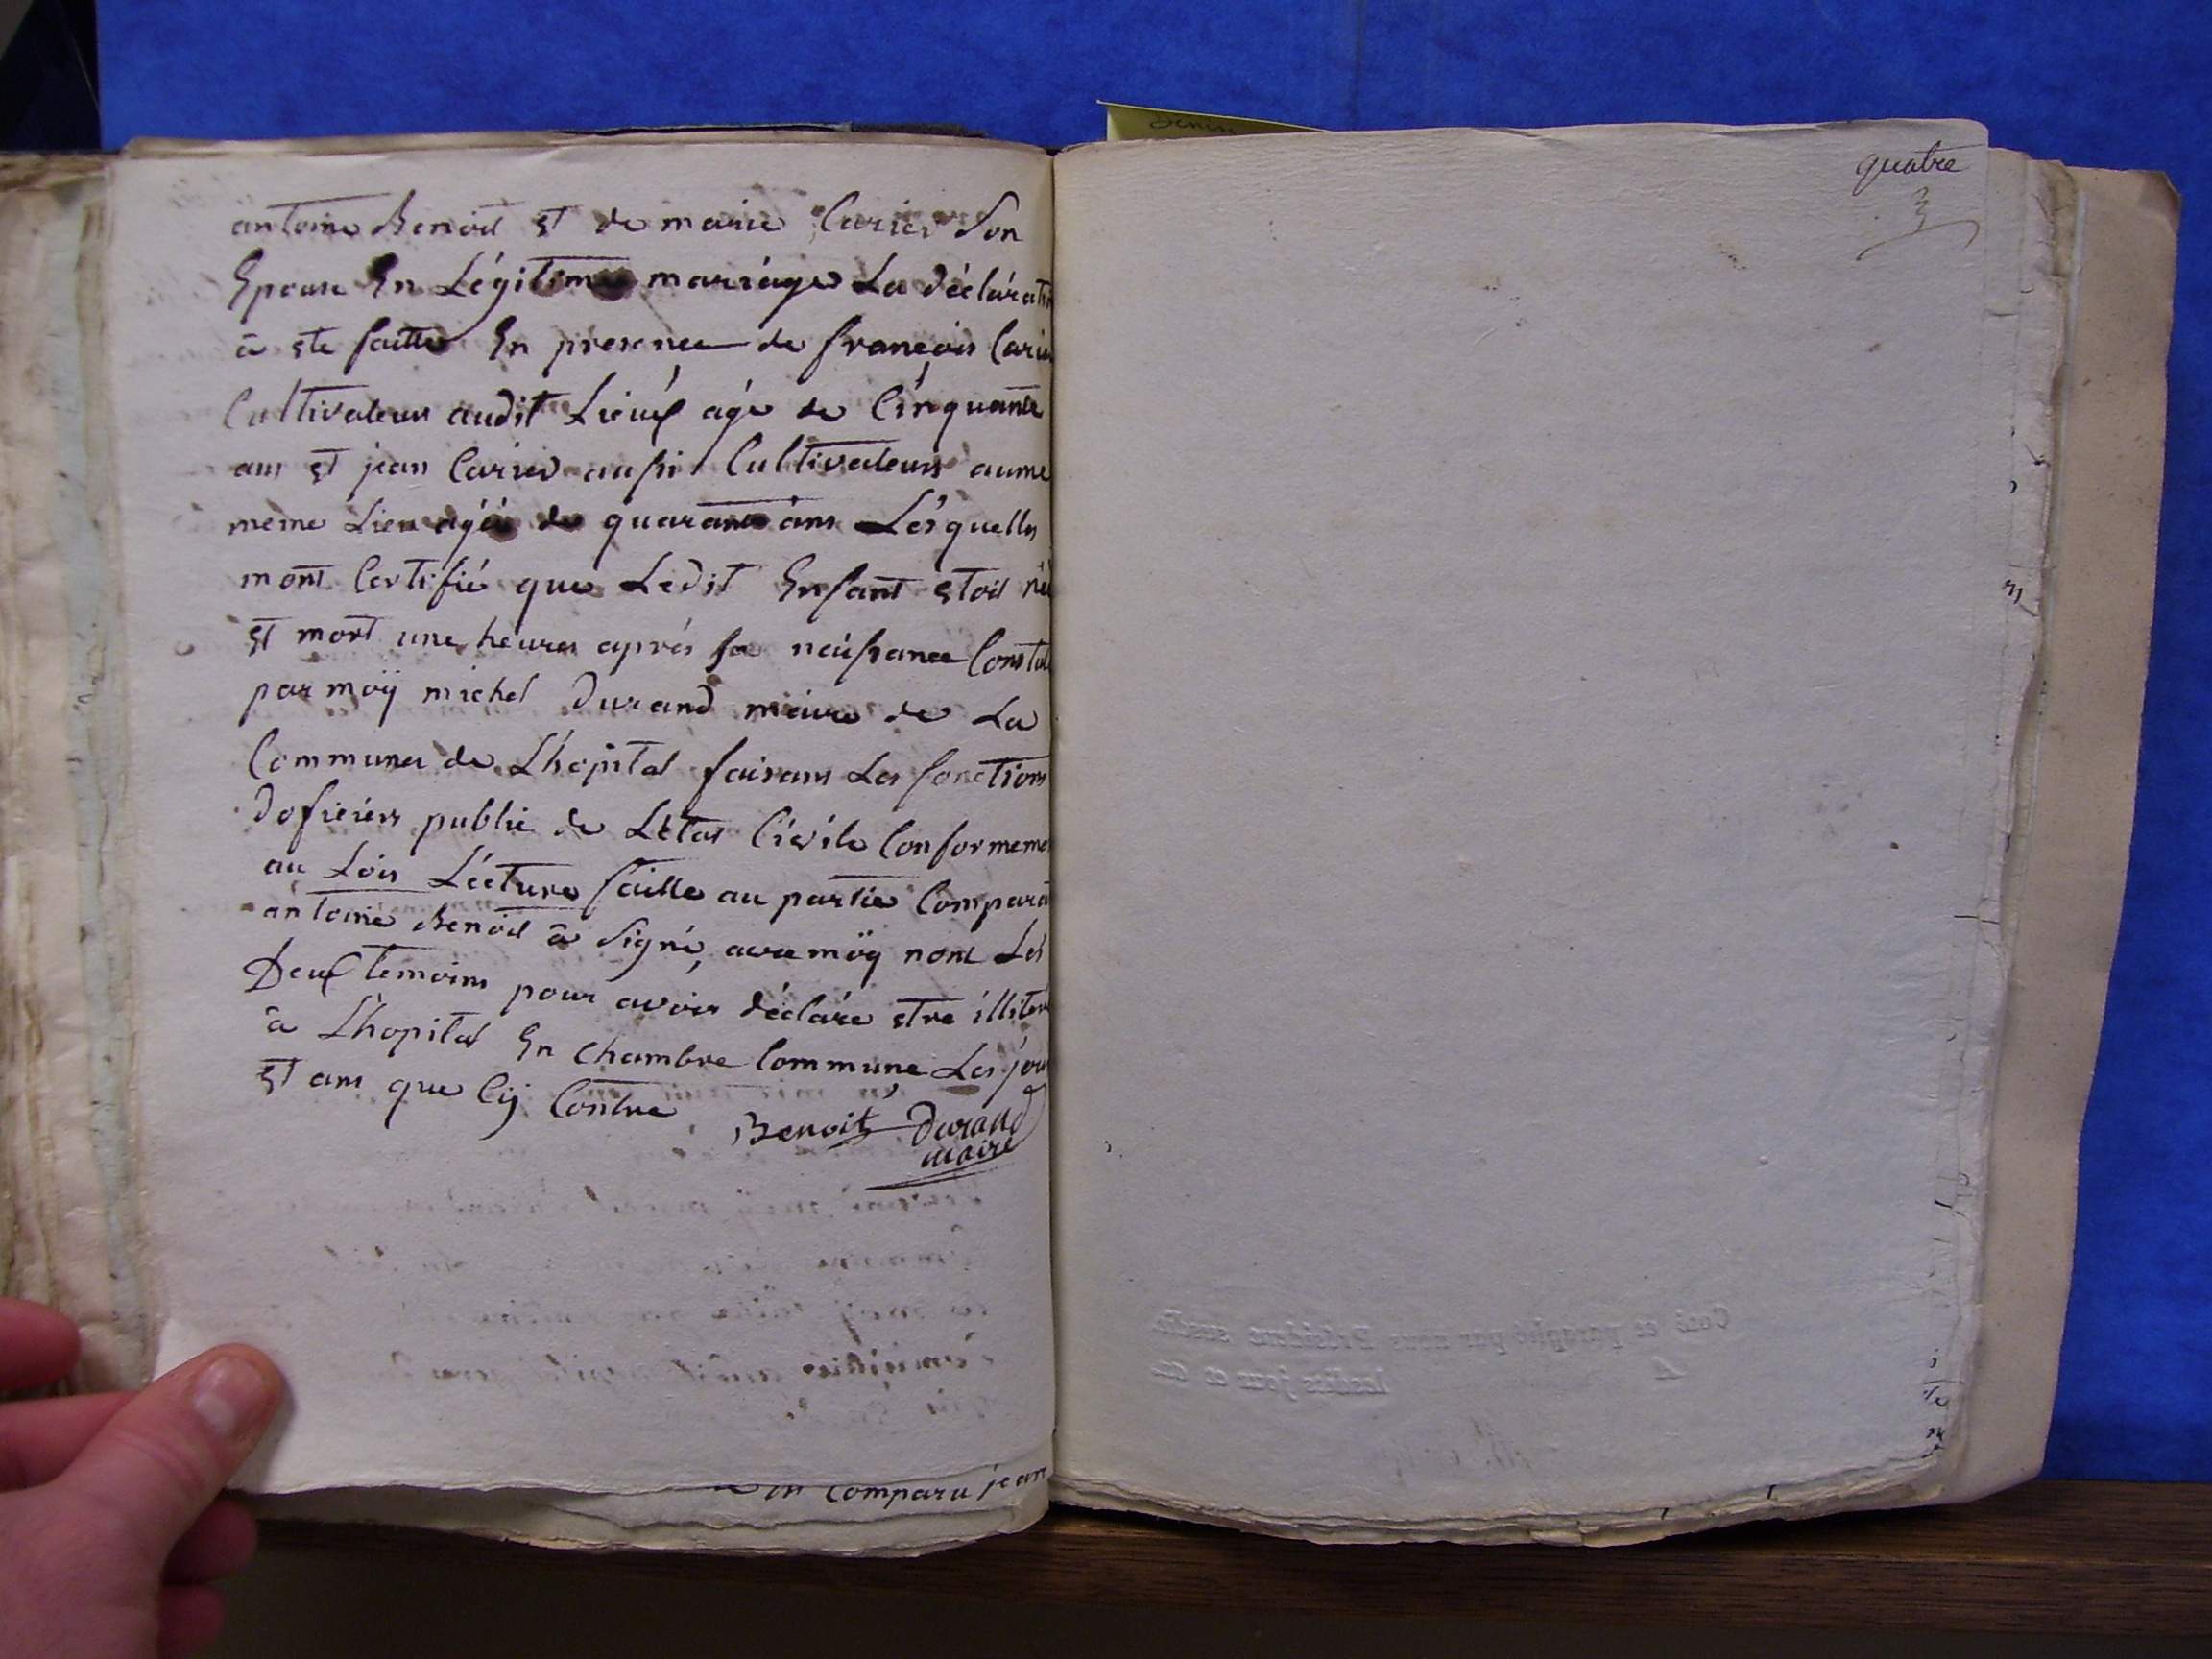 antoine Benoit Et de marie Carier Son
Epouse En Légitime mariage La déclarati
à ete faitte En presence de françois Carie
Cultivateur audit Lieux agé de Cinquante
ans Et jean Carier aussi Cultivateur aume
meme Lieu agéé de quarante ans Lésquelles
mont Certifié que Ledit Enfant Etoit né
Et mort une heures aprés sa naissance Consta
par moÿ michel Durand maire de La
Communes de Lhopital faisans Les fonctions
doficiers public de Létat Civile Conformeme
au Lois Lécture faitte au partie Compara
antoine Benoit à Signé, avec moÿ nont Les
Deux temoins pour avoir déclaré Etre illiter
à Lhopital En Chambre Commune Les jou
Et ans que Cij Contre
Benoit Durand
maire
comparu jean
quatre
Coté et paraphé par nous Président susdit
lesdits jour et an